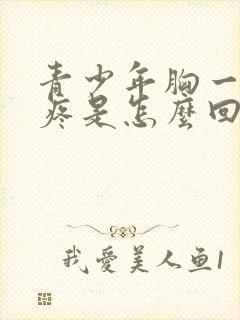 青少年胸一
疼是怎麼回
我愛美人鱼1